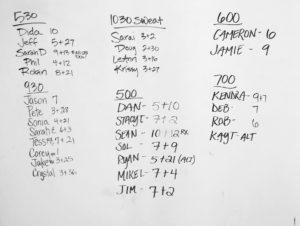 530
Dida 10
Jeff 5+27
Sarah D 9+3
Phil 4+12
Robin 8+21
930
Jason 7
Pete 3+28
Sonia 4+21
Sarah E 6+3
Tess 9+21
Corey
Jake 3+25
Crystal 3+36
1030 Sweat
Sarai 3+2
Doug 2+30
LeAnn 3+16
Krissy 3+27
500
DAN - 5+10
STACY T - 7+2
SEAN - 10 | 12 RX
SOL - 9
RYAN - 5+21 (ALT)
MIKEL - 7+4
JIM - 7+2
600
CAMERON - 10
JAMIE - 9
700
KENDRA - 9+7
DEB - 7
ROB - 6
KAYT - ALT